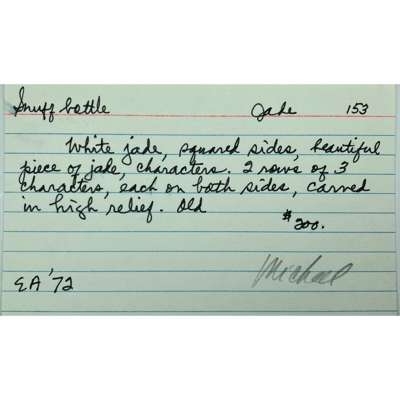 Snuff bottle Jade 153
White jade, squared sides, beautiful
piece of jade, characters. 2 rows of 3
characters, each on both sides, carved
in high relief. Old
$200.
Michael
EA '72